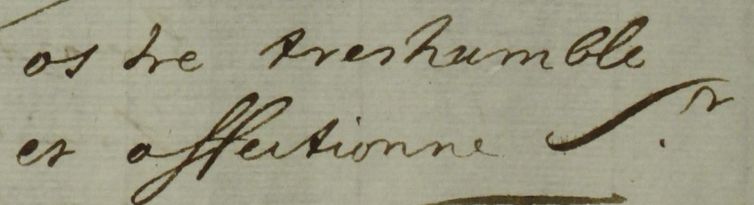 ostre treshumble
et affectionne S.r